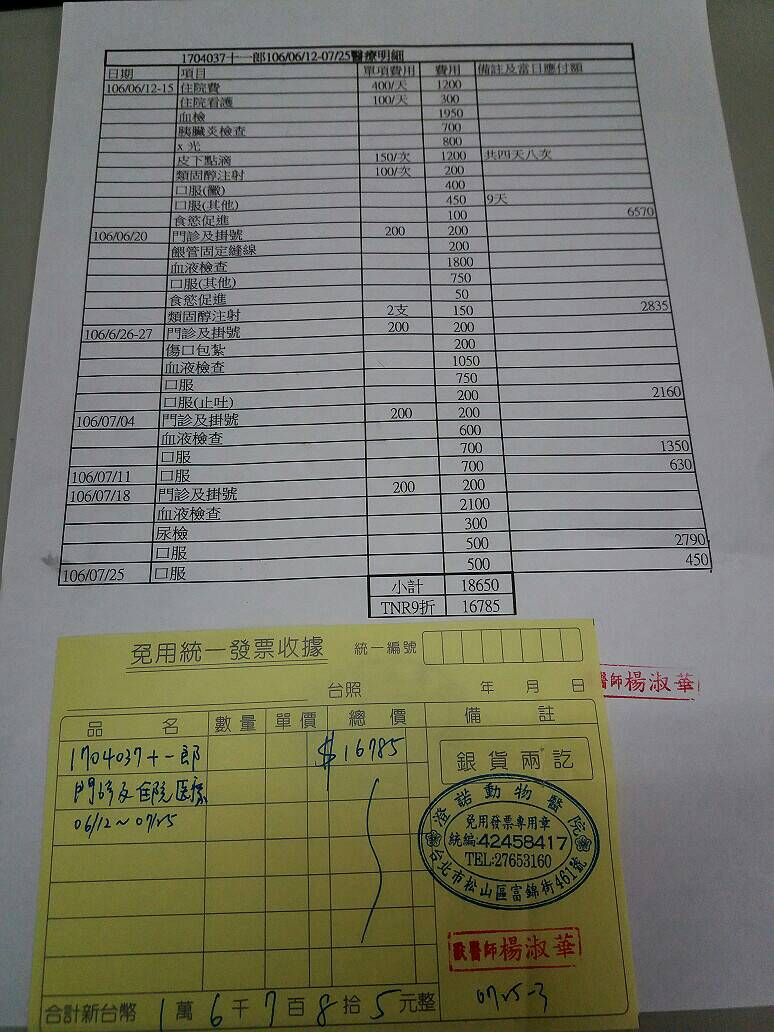 1704037十一郎106/06/12-07/25醫療明細
日期 項目 單項費用 費用 備註及當日應付額
106/06/12-15 住院費 400/天 1200
住院看護 100/天 300
血檢 1950
胰臟炎檢查 700
x 光 800
皮下點滴 150/次 1200 共四天八次
類固醇注射 100/次 200
口服(黴) 400
口服(其他) 450 9天
食慾促進 100 6570
106/06/20 門診及掛號 200 200
餵管固定縫線 200
血液檢查 1800
口服(其他) 750
食慾促進 50
類固醇注射 2支 150 2835
106/6/26-27 門診及掛號 200 200
傷口包紮 200
血液檢查 1050
口服 750
口服(止吐) 200 2160
106/07/04 門診及掛號 200 200
血液檢查 600
口服 700 1350
106/07/11 口服 700 630
106/07/18 門診及掛號 200 200
血液檢查 2100
尿檢 300
口服 500 2790
106/07/25 口服 500 450
小計 18650
TNR9折 16785
醫師楊淑華
免用統一發票收據 統一編號
台照 年 月 日
品名 數量 單價 總價 備註
1704037十一郎 $16785
門診及住院医療
06/12~07/25
銀貨兩訖
澄諾動物醫院
免用發票專用章
統編:42458417
TEL:27653160
台北市松山區富錦街461號
獸醫師楊淑華
合計新台幣 1萬6千7百8拾5元整
07/25-3